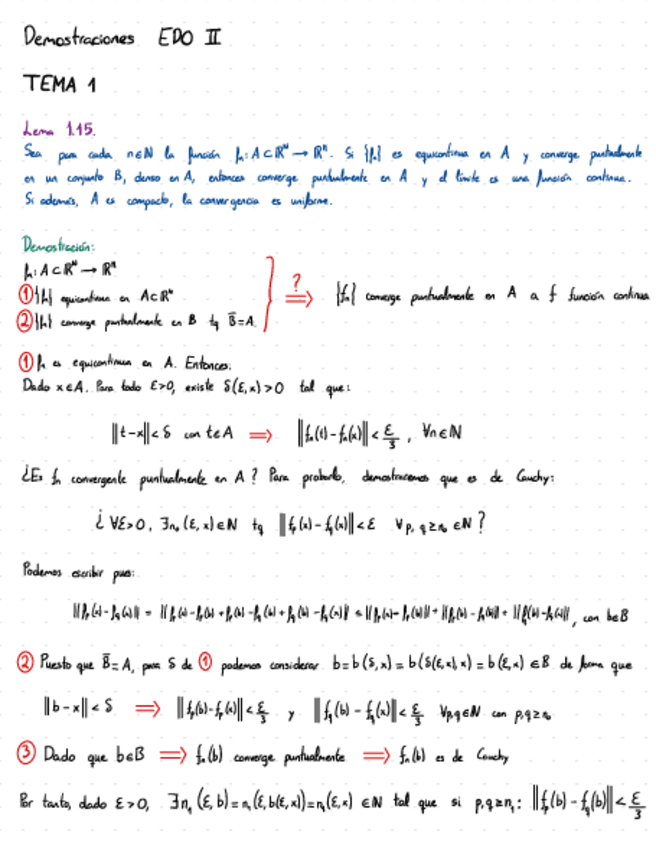 Demostraciones EDO II
TEMA 1
Lema 1.15.
Sea para cada n∈ℕ la función fₙ: A⊂ℝᴺ → ℝⁿ. Si {fₙ} es equicontinua en A y converge puntualmente
en un conjunto B, denso en A, entonces converge puntualmente en A y el límite es una función continua.
Si además, A es compacto, la convergencia es uniforme.
Demostración:
fₙ: A⊂ℝᴺ → ℝⁿ
① {fₙ} equicontinua en A⊂ℝᴺ
② {fₙ} converge puntualmente en B tq B̅=A
? ⟹ {fₙ} converge puntualmente en A a f función continua
① fₙ es equicontinua en A. Entonces:
Dado x∈A. Para todo ε>0, existe δ(ε,x)>0 tal que:
‖t-x‖<δ con t∈A ⟹ ‖fₙ(t)-fₙ(x)‖<ε/3, ∀n∈ℕ
¿Es fₙ convergente puntualmente en A? Para probarlo, demostraremos que es de Cauchy:
¿ ∀ε>0, ∃n₀(ε,x)∈ℕ tq ‖fₚ(x)-f_q(x)‖<ε ∀p,q≥n₀∈ℕ ?
Podemos escribir pues:
‖fₚ(x)-f_q(x)‖ = ‖fₚ(x)-fₚ(b)+fₚ(b)-f_q(b)+f_q(b)-f_q(x)‖ ≤ ‖fₚ(x)-fₚ(b)‖+‖fₚ(b)-f_q(b)‖+‖f_q(b)-f_q(x)‖, con b∈B
② Puesto que B̅=A, para δ de ① podemos considerar b=b(δ,x)=b(δ(ε,x),x)=b(ε,x)∈B de forma que
‖b-x‖<δ ⟹ ‖fₚ(b)-fₚ(x)‖<ε/3 y ‖f_q(b)-f_q(x)‖<ε/3 ∀p,q∈ℕ con p,q≥n₀
③ Dado que b∈B ⟹ fₙ(b) converge puntualmente ⟹ fₙ(b) es de Cauchy
Por tanto, dado ε>0, ∃n₁(ε,b)=n₁(ε,b(ε,x))=n₁(ε,x)∈ℕ tal que si p,q≥n₁: ‖fₚ(b)-f_q(b)‖<ε/3